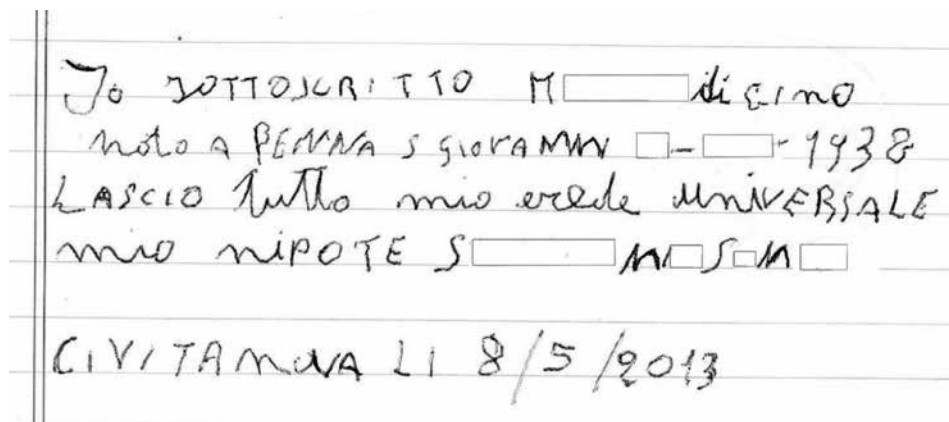 Io SOTTOSCRITTO M di gino
noto a PENNA S GIOVANNI - - 1938
LASCIO tutto mio erede UNIVERSALE
mio NIPOTE S M S M
CIVITANOVA LI 8/5/2013